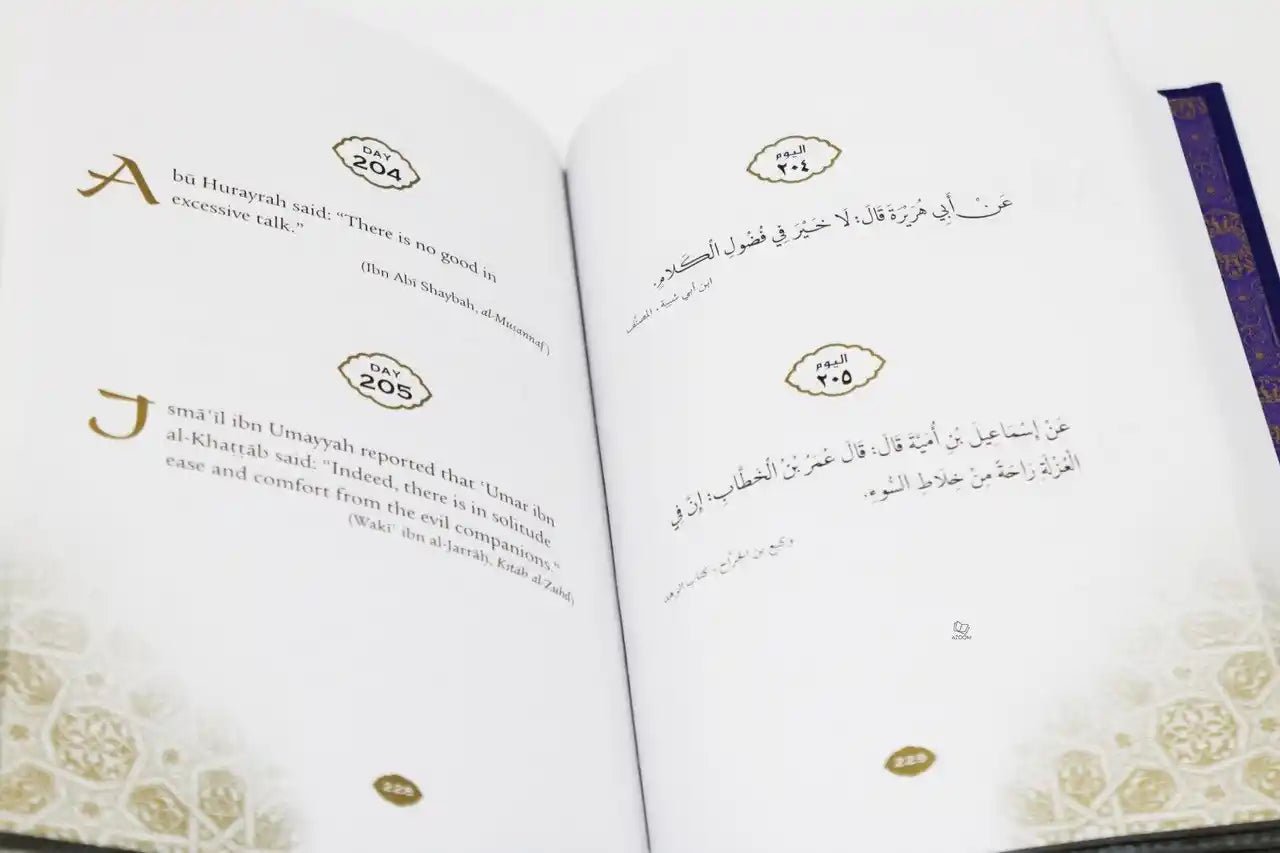 DAY
204
Abū Hurayrah said: “There is no good in
excessive talk.”
(Ibn Abī Shaybah, al-Muṣannaf)
DAY
205
Ismāʿīl ibn Umayyah reported that ʿUmar ibn
al-Khaṭṭāb said: “Indeed, there is in solitude
ease and comfort from the evil companions.”
(Wakīʿ ibn al-Jarrāḥ, Kitāb al-Zuhd)
228
اليوم
٢٠٤
عَنْ أَبِي هُرَيْرَةَ قَالَ: لَا خَيْرَ فِي فُضُولِ الْكَلَامِ.
ابن أبي شيبة، المصنَّف
اليوم
٢٠٥
عَنْ إِسْمَاعِيلَ بْنِ أُمَيَّةَ قَالَ: قَالَ عُمَرُ بْنُ الْخَطَّابِ: إِنَّ فِي
الْعُزْلَةِ رَاحَةً مِنْ خِلَاطِ السُّوءِ.
وكيع بن الجراح، كتاب الزهد
AZOOM
229